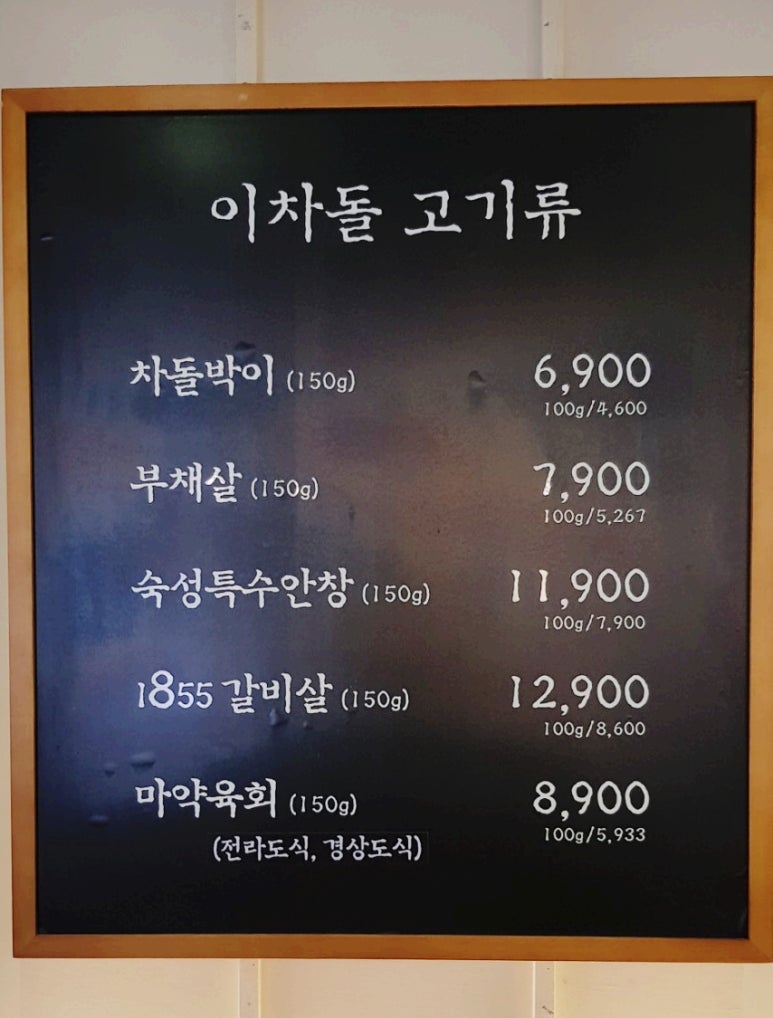 이차돌 고기류
차돌박이 (150g) 6,900
100g/4,600
부채살 (150g) 7,900
100g/5,267
숙성특수안창 (150g) 11,900
100g/7,900
1855 갈비살 (150g) 12,900
100g/8,600
마약육회 (150g) 8,900
100g/5,933
(전라도식, 경상도식)